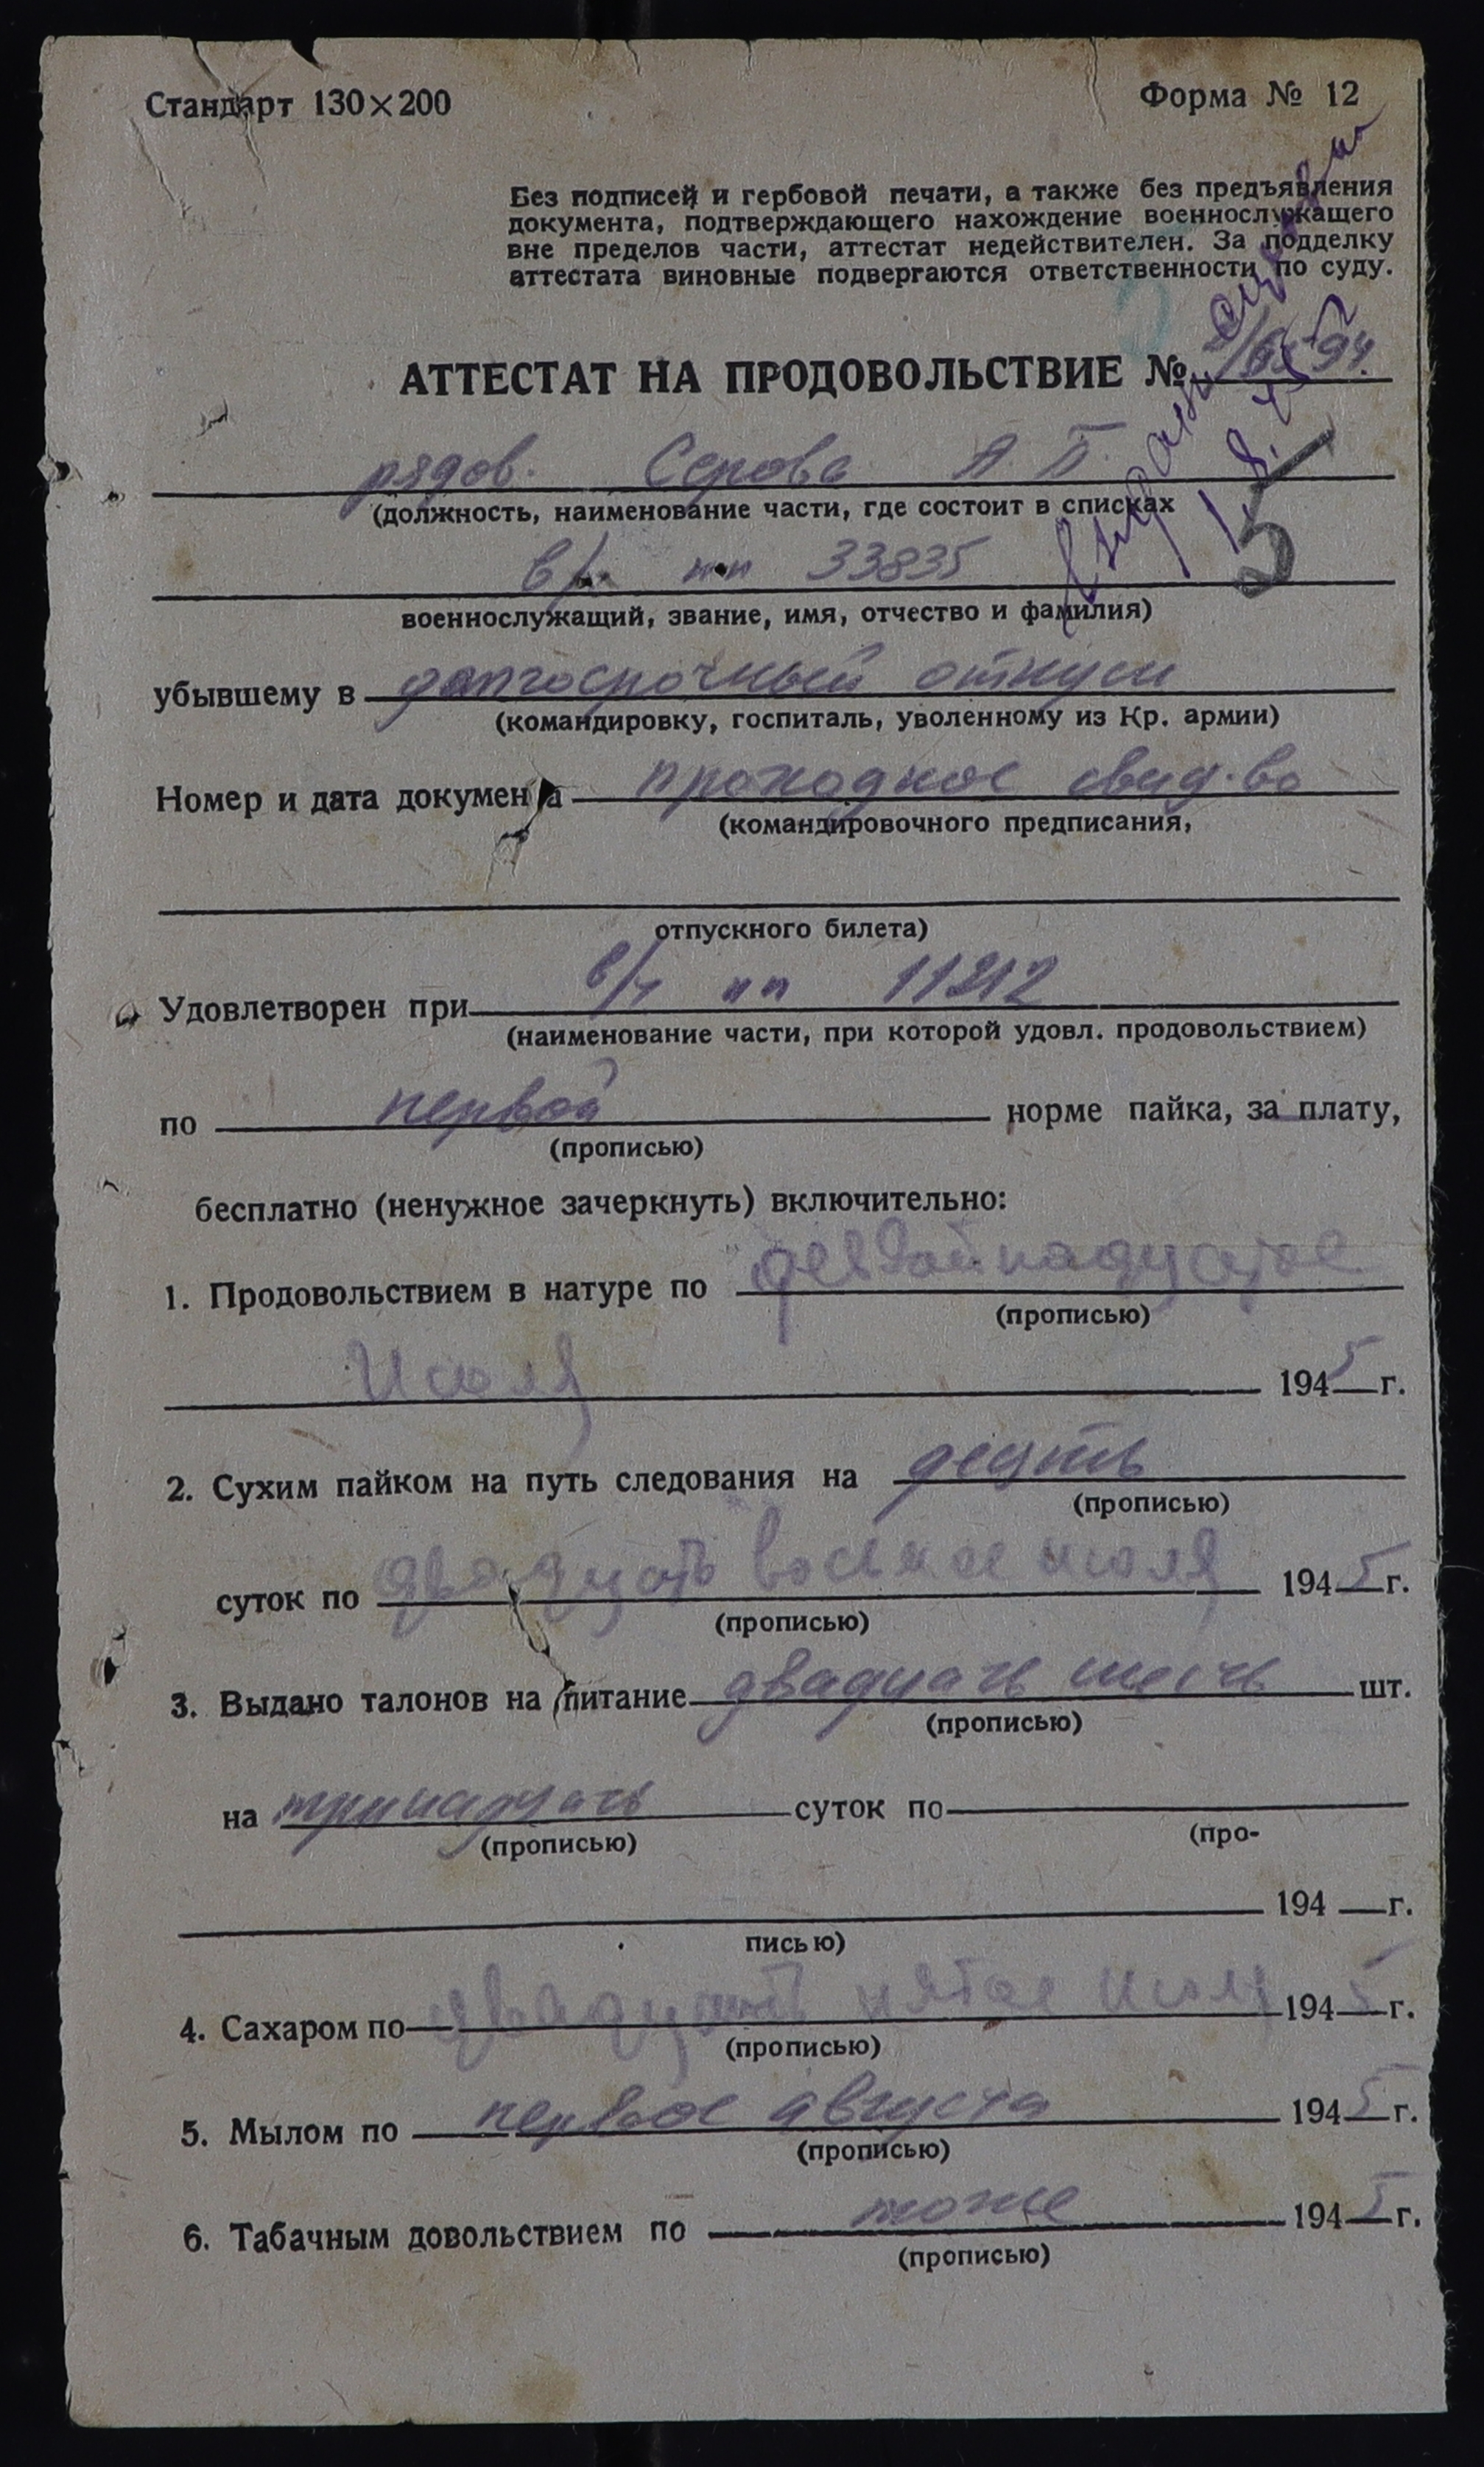 Стандарт 130×200
Форма № 12
Без подписей и гербовой печати, а также без предъявления
документа, подтверждающего нахождение военнослужащего
вне пределов части, аттестат недействителен. За подделку
аттестата виновные подвергаются ответственности по суду.
АТТЕСТАТ НА ПРОДОВОЛЬСТВИЕ №
рядов. Серова А. Б.
(должность, наименование части, где состоит в списках
5
в/ч пп 33835
военнослужащий, звание, имя, отчество и фамилия)
убывшему в долгосрочный отпуск
(командировку, госпиталь, уволенному из Кр. армии)
Номер и дата документа проходное свид-во
(командировочного предписания,
отпускного билета)
Удовлетворен при в/ч пп 11212
(наименование части, при которой удовл. продовольствием)
по первой норме пайка, за плату,
(прописью)
бесплатно (ненужное зачеркнуть) включительно:
1. Продовольствием в натуре по
(прописью)
Июля 1945 г.
2. Сухим пайком на путь следования на десять
(прописью)
суток по двадцать восьмое июля 1945 г.
(прописью)
3. Выдано талонов на питание двадцать шесть шт.
(прописью)
на тринадцать суток по
(прописью) (про-
194 г.
писью)
4. Сахаром по двадцать пятое июля 1945 г.
(прописью)
5. Мылом по первое августа 1945 г.
(прописью)
6. Табачным довольствием по тоже 1945 г.
(прописью)